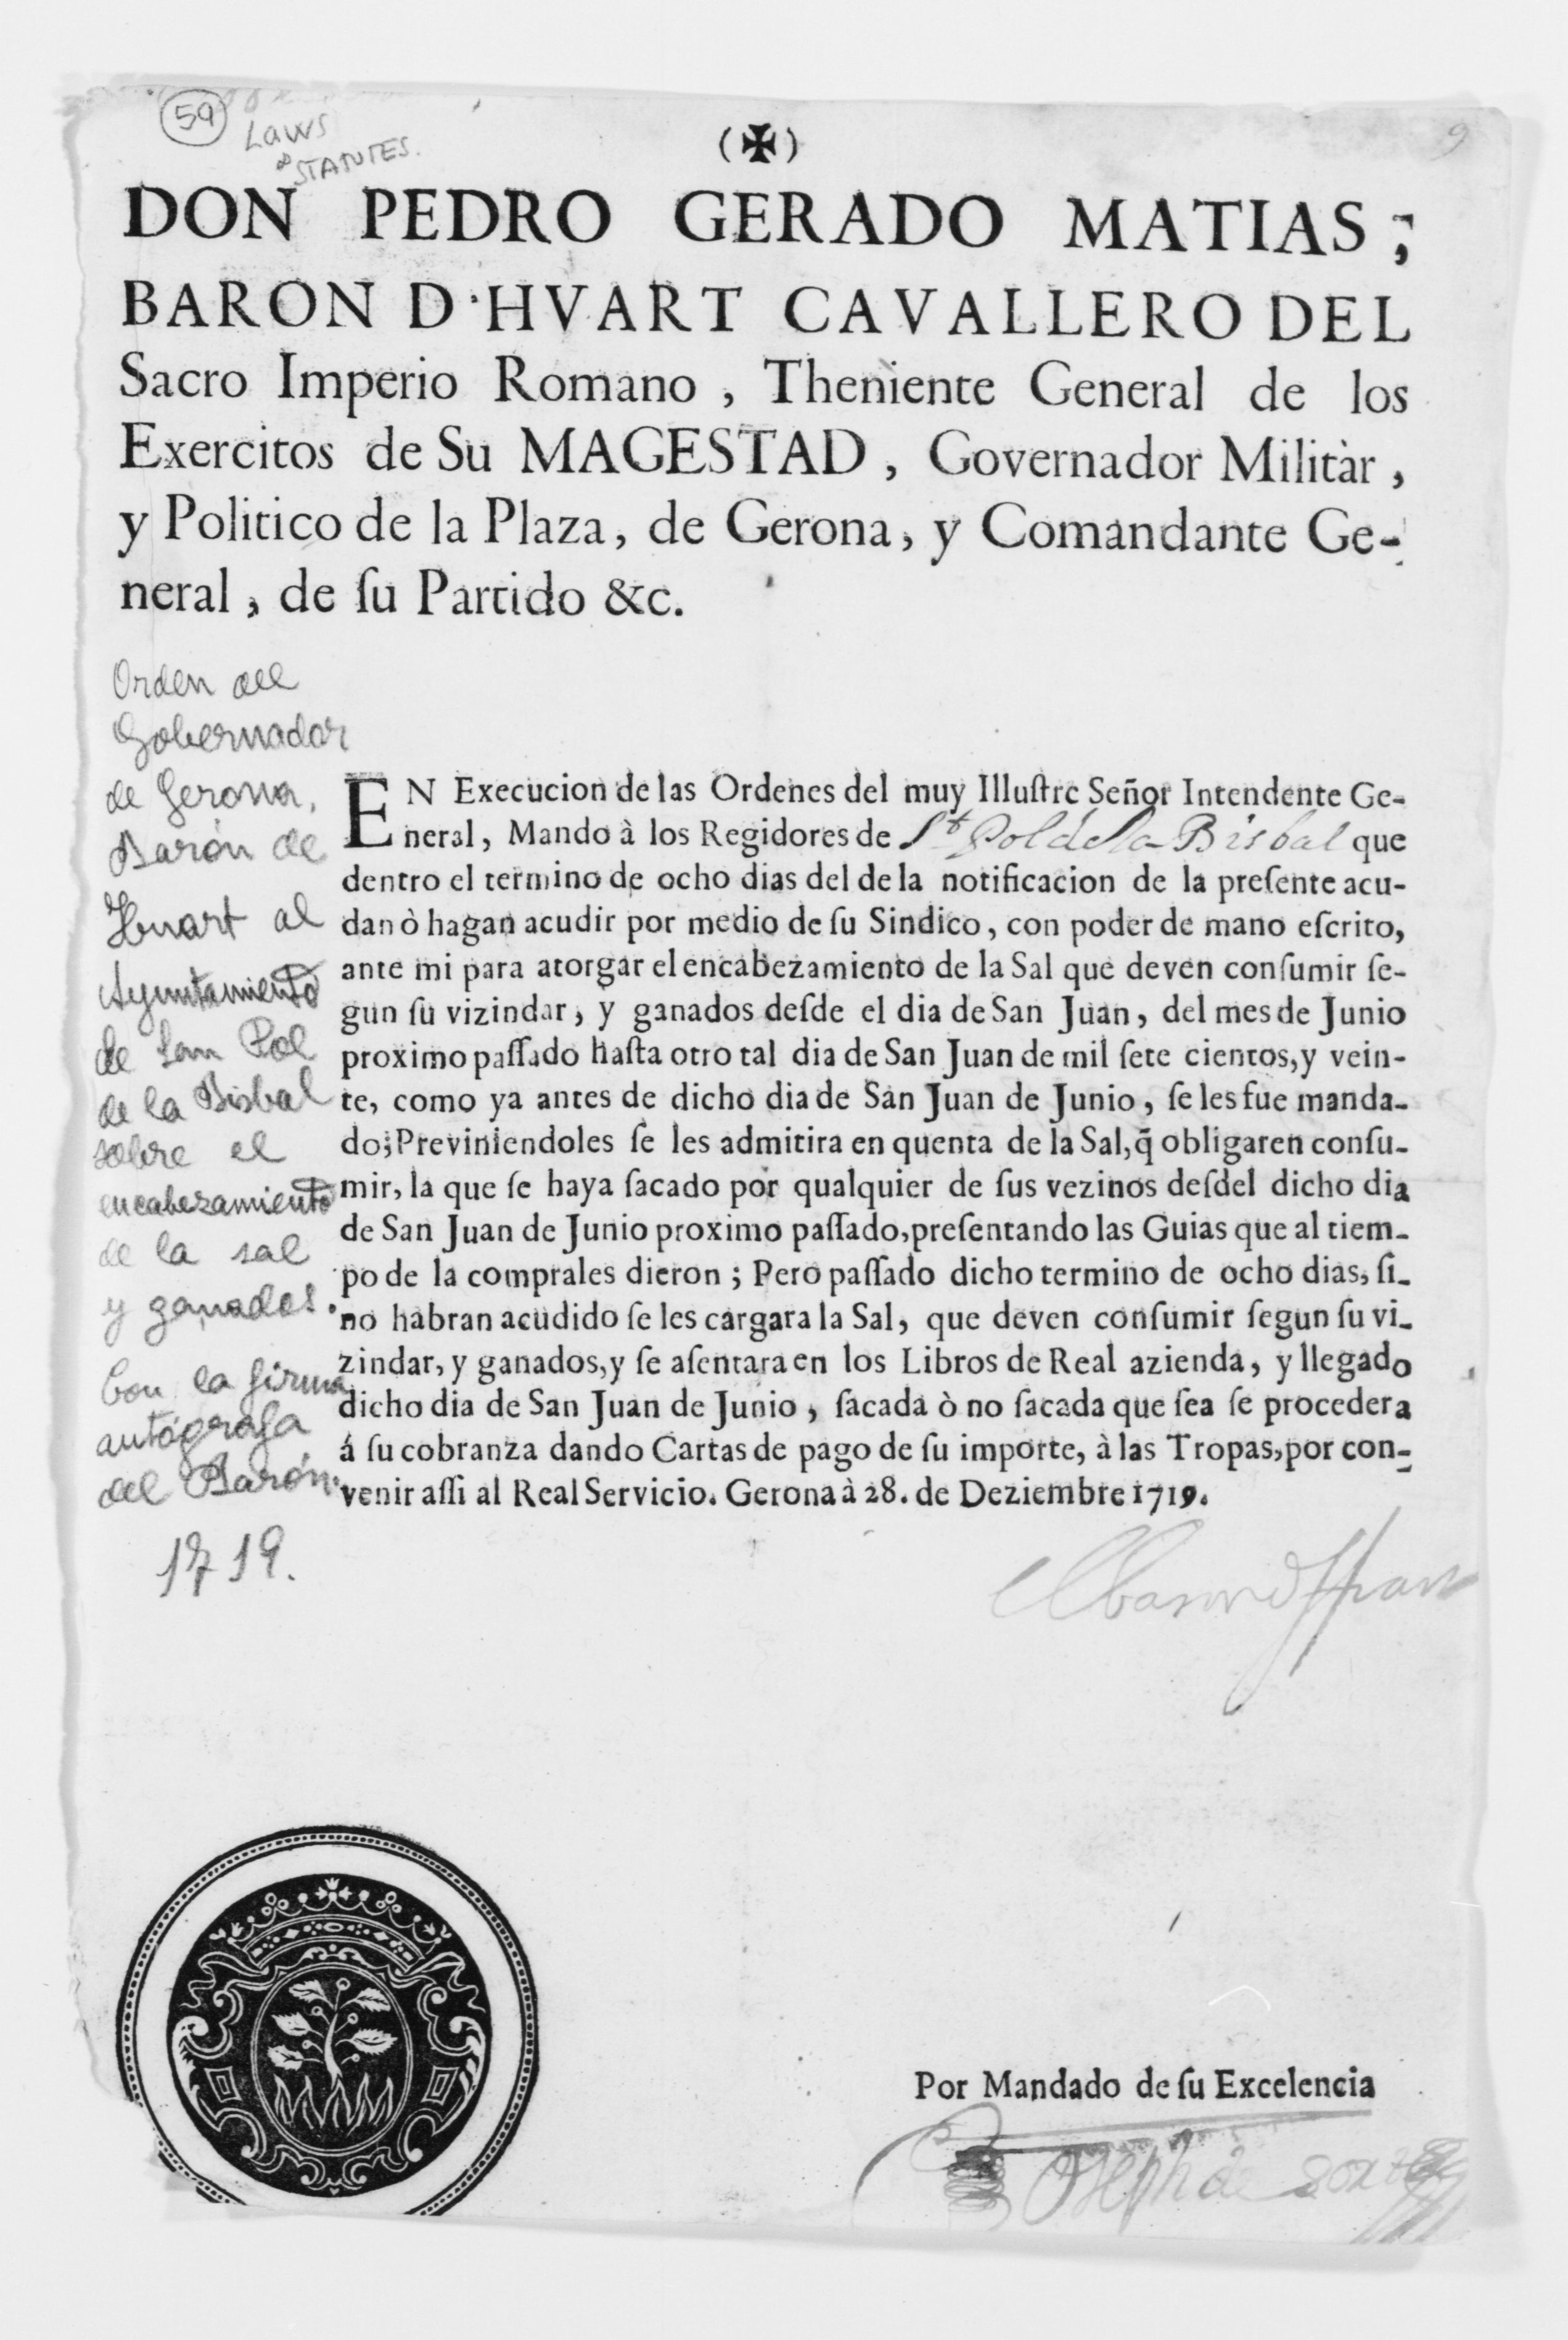 59
Laws
& STATUTES.
9
(✠)
DON PEDRO GERADO MATIAS;
BARON D'HVART CAVALLERO DEL
Sacro Imperio Romano , Theniente General de los
Exercitos de Su MAGESTAD , Governador Militàr ,
y Politico de la Plaza, de Gerona, y Comandante Ge-
neral, de ſu Partido &c.
Orden del
Gobernador
de Gerona,
Barón de
Huart al
Ayuntamiento
de San Pol
de la Bisbal
sobre el
encabezamiento
de la sal
y ganados.
Con la firma
autógrafa
del Barón.
1719.
EN Execucion de las Ordenes del muy Illuſtre Señor Intendente Ge-
neral, Mando à los Regidores de St Pol de la Bisbal que
dentro el termino de ocho dias del de la notificacion de la preſente acu-
dan ò hagan acudir por medio de ſu Sindico, con poder de mano eſcrito,
ante mi para atorgar el encabezamiento de la Sal que deven conſumir ſe-
gun ſu vizindar, y ganados deſde el dia de San Juan, del mes de Junio
proximo paſſado haſta otro tal dia de San Juan de mil ſete cientos, y vein-
te, como ya antes de dicho dia de San Juan de Junio, ſe les fue manda-
do; Previniendoles ſe les admitira en quenta de la Sal, q̃ obligaren conſu-
mir, la que ſe haya ſacado por qualquier de ſus vezinos deſdel dicho dia
de San Juan de Junio proximo paſſado, preſentando las Guias que al tiem-
po de la comprales dieron; Pero paſſado dicho termino de ocho dias, ſi-
no habran acudido ſe les cargara la Sal, que deven conſumir ſegun ſu vi-
zindar, y ganados, y ſe aſentara en los Libros de Real azienda, y llegado
dicho dia de San Juan de Junio, ſacada ò no ſacada que ſea ſe procedera
á ſu cobranza dando Cartas de pago de ſu importe, à las Tropas, por con-
venir aſſi al Real Servicio. Gerona à 28. de Deziembre 1719.
El baron d'Huart
Por Mandado de ſu Excelencia
Joseph de